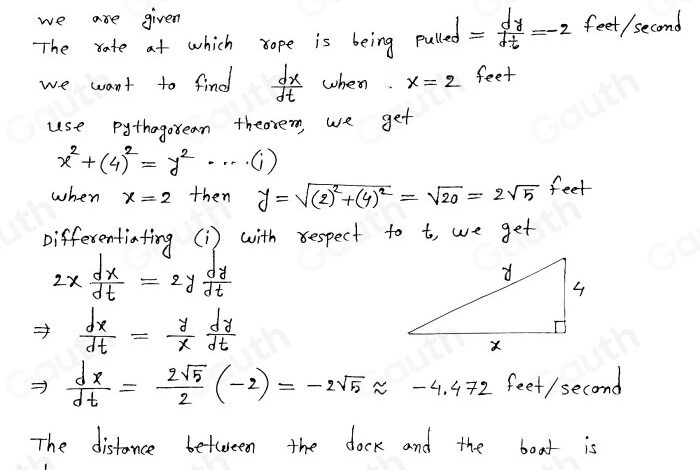 we are given
The rate at which rope is being pulled = dy/dt = -2 feet/second
we want to find dx/dt when . x = 2 feet
use pythagorean theorem, we get
x² + (4)² = y² ....(i)
when x = 2 then y = √((2)² + (4)²) = √20 = 2√5 feet
Differentiating (i) with respect to t, we get
2x dx/dt = 2y dy/dt
⇒ dx/dt = y/x dy/dt
y
4
x
⇒ dx/dt = 2√5/2 (-2) = -2√5 ≈ -4.472 feet/second
The distance between the dock and the boat is